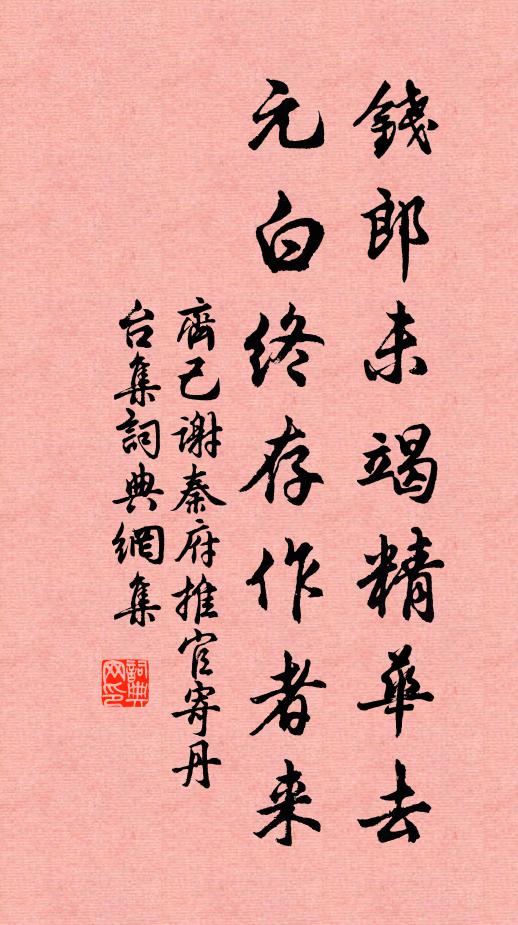 錢郎未竭精華去
元白終存作者来
齊己谢秦府推官寄丹
台集詞典網集
詞典网印